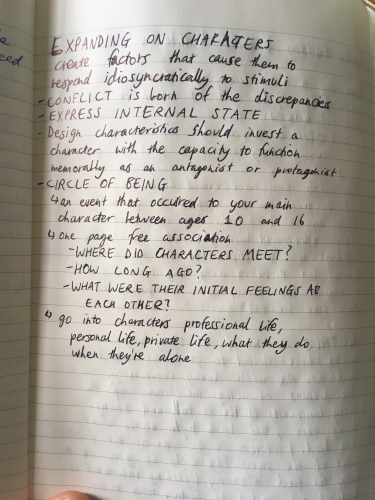 EXPANDING ON CHARACTERS
create factors that cause them to
respond idiosyncratically to stimuli
- CONFLICT is born of the discrepancies
- EXPRESS INTERNAL STATE
- Design characteristics should invest a
character with the capacity to function
memorally as an antagonist or protagonist
- CIRCLE OF BEING
↳ an event that occurred to your main
character between ages 10 and 16
↳ one page free association
- WHERE DID CHARACTERS MEET?
- HOW LONG AGO?
- WHAT WERE THEIR INITIAL FEELINGS AB
EACH OTHER?
↳ go into characters professional life,
personal life, private life, what they do
when they're alone